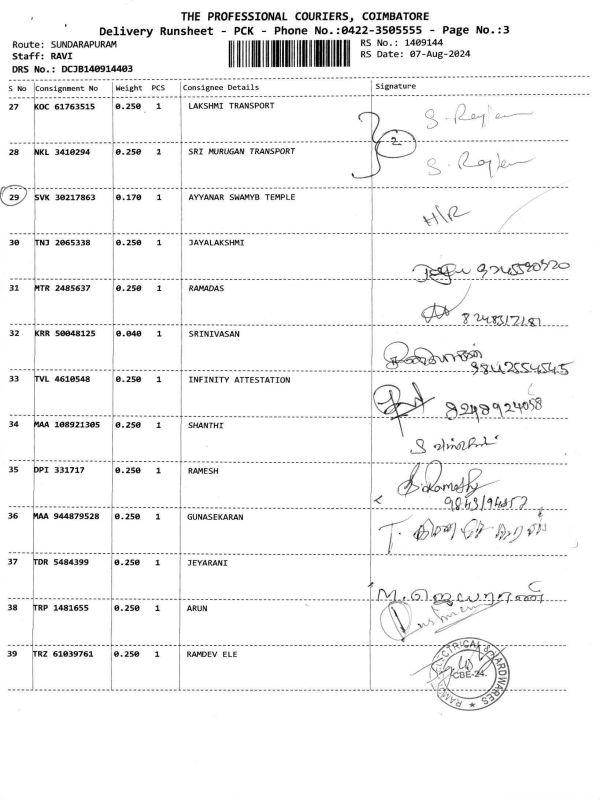 THE PROFESSIONAL COURIERS, COIMBATORE
Delivery Runsheet - PCK - Phone No.:0422-3505555 - Page No.:3
Route: SUNDARAPURAM RS No.: 1409144
Staff: RAVI RS Date: 07-Aug-2024
DRS No.: DCJB140914403
S No Consignment No Weight PCS Consignee Details Signature
27 KOC 61763515 0.250 1 LAKSHMI TRANSPORT
2
28 NKL 3410294 0.250 1 SRI MURUGAN TRANSPORT
29 SVK 30217863 0.170 1 AYYANAR SWAMYB TEMPLE
H/R
30 TNJ 2065338 0.250 1 JAYALAKSHMI
31 MTR 2485637 0.250 1 RAMADAS
32 KRR 50048125 0.040 1 SRINIVASAN
9842554545
33 TVL 4610548 0.250 1 INFINITY ATTESTATION
8248924058
34 MAA 108921305 0.250 1 SHANTHI
35 DPI 331717 0.250 1 RAMESH
36 MAA 944879528 0.250 1 GUNASEKARAN
T. குணசேகரன்
37 TDR 5484399 0.250 1 JEYARANI
M. ஜெயராணி
38 TRP 1481655 0.250 1 ARUN
39 TRZ 61039761 0.250 1 RAMDEV ELE
RAMDEV ELECTRICAL & HARDWARES
CBE-24.